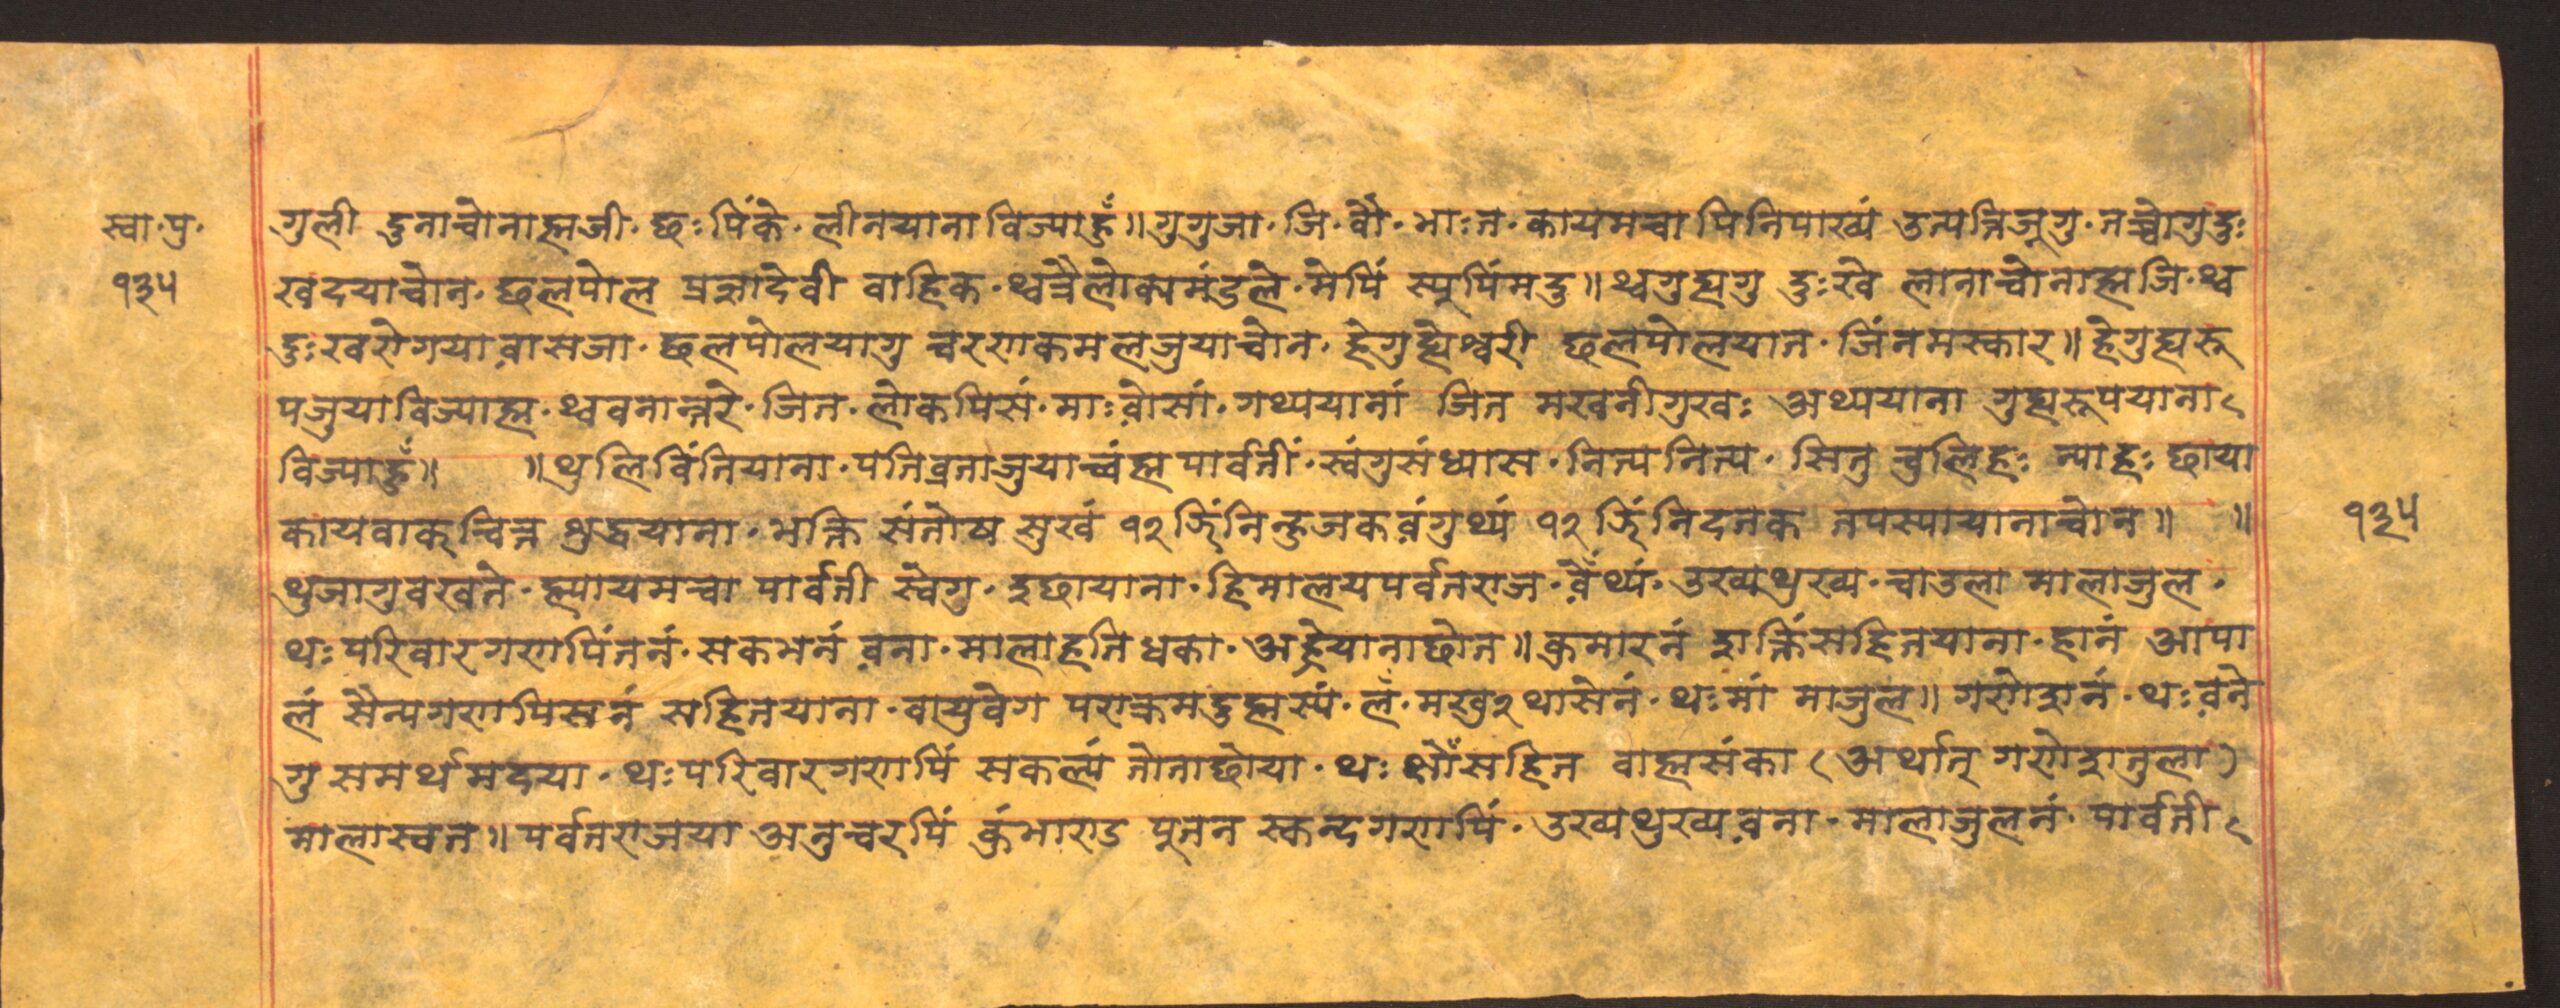 स्वा·पु·
१३५
गुली दुनाच्वोनाह्मजी· छः पिंके· लीनयानाविज्याहुँ॥ गुगुजा· जि· बौ· माः त· कायमचा पिनिपाख्यं उत्पत्तिजूगु· तच्वोगुदुः
खदयाच्वोन· छलपोल प्रज्ञादेवी वाहिक· थ्वत्रैलोक्यमंडले· मेपिं स्यूपिंमदु॥ थ्वगुह्यगु दुःखे लानाच्वोनाह्मजि· थ्व
दुःखरोगया वासजा· छलपोलयागु चरणकमलजुयाच्वोन· हेगुह्येश्वरी छलपोलयात· जिंनमस्कार॥ हेगुह्यरू
पजुयाविज्याह्म· थ्ववनान्तरे· जित· लोकपिसं· माः वोसां· गथ्ययानां जित मखनीगुखः अथ्ययाना गुह्यरूपयाना
विज्याहुँ॥ ॥ थुलिविंतियाना· पतिव्रताजुयाच्वंह्म पार्वतीं· स्वंगुसंध्यास· नित्यनित्य· सितु चुलिहः न्याहः छाया
कायवाक्चित्त शुद्धयाना· भक्ति संतोष सुखं १२ झिंनिन्हुजक वंगुथ्यं १२ झिंनिदतक तपस्यायानाच्वोन॥ ॥
थुजागुवखते· ह्यायमचा पार्वती स्वेगु· इछायाना· हिमालयपर्वतराज· वैंथ्यं· उख्यथुख्य· चाउला मालाजुल·
थः परिवारगणपिंततं· सकभनं वना· मालाहति धका· अह्रेयानाछोत॥ कुमारनं शक्तिंसहितयाना· हानं आपा
लं सैन्यगणपिसनं सहितयाना· वायुवेग पराक्रमदुह्मस्यं· लँ· मखु२ थासेनं· थःमां माजुल॥ गणेशनं· थः वने
गु समर्थमदया· थः परिवारगणपिं सकल्यं तोताछोया· थः सहित वाह्मसंका ( अर्थात् गणेशतुला )
मालास्वत॥ पर्वतराजया अनुचरपिं कुंभाण्ड पूतन स्कन्दगणपिं· उख्यथुख्य वना· मालाजुलनं· पार्वती
१३५